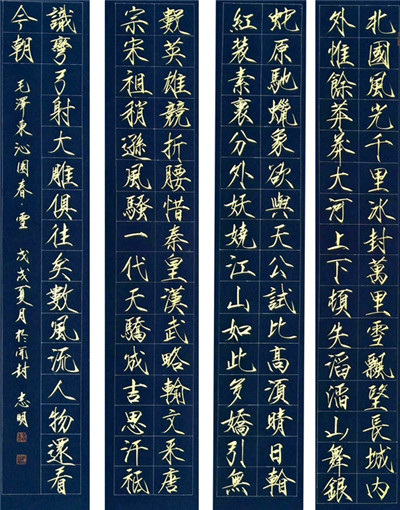 北國風光千里冰封萬里雪飄望長城內
外惟餘莽莽大河上下頓失滔滔山舞銀
蛇原馳蠟象欲與天公試比高須晴日看
紅裝素裹分外妖嬈江山如此多嬌引無
數英雄競折腰惜秦皇漢武略輸文采唐
宗宋祖稍遜風騷一代天驕成吉思汗祗
識彎弓射大雕俱往矣數風流人物還看
今朝
毛澤東沁園春·雪 戊戌夏月於開封 志明